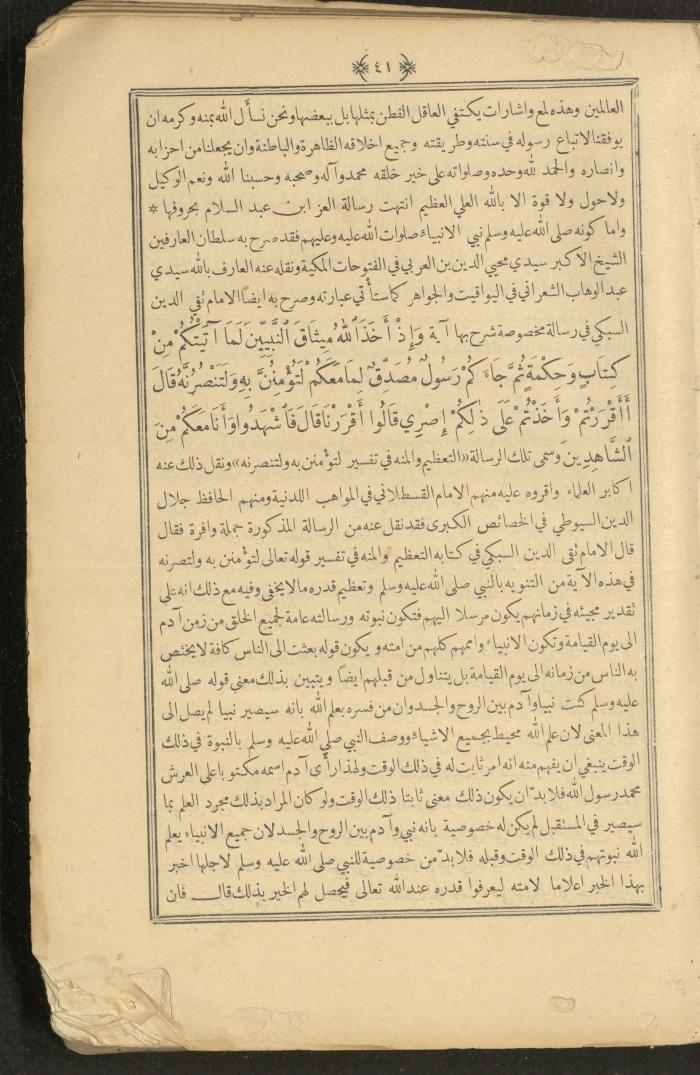 ﴿٤١﴾
العالمين وهذه لمع واشارات يكتفي العاقل الفطن بمثلها بل ببعضها ونحن نسأل الله بمنه وكرمه ان
يوفقنا لاتباع رسوله في سنته وطريقته وجميع اخلاقه الظاهرة والباطنة وان يجعلنا من احزابه
وانصاره والحمد لله وحده وصلواته على خير خلقه محمد وآله وصحبه وحسبنا الله ونعم الوكيل
ولا حول ولا قوة الا بالله العلي العظيم انتهت رسالة العز ابن عبد السلام بحروفها *
واما كونه صلى الله عليه وسلم نبي الانبياء صلوات الله عليه وعليهم فقد صرح به سلطان العارفين
الشيخ الاكبر سيدي محيي الدين بن العربي في الفتوحات المكية ونقله عنه العارف بالله سيدي
عبد الوهاب الشعراني في اليواقيت والجواهر كما ستأتي عبارته وصرح به ايضاً الامام تقي الدين
السبكي في رسالة مخصوصة شرح بها آية وَإِذْ أَخَذَ ٱللهُ مِيثَاقَ ٱلنَّبِيِّينَ لَمَا آتَيْتُكُمْ مِنْ
كِتَابٍ وَحِكْمَةٍ ثُمَّ جَاءَكُمْ رَسُولٌ مُصَدِّقٌ لِمَا مَعَكُمْ لَتُؤْمِنُنَّ بِهِ وَلَتَنْصُرُنَّهُ قَالَ
أَأَقْرَرْتُمْ وَأَخَذْتُمْ عَلَى ذٰلِكُمْ إِصْرِي قَالُوا أَقْرَرْنَا قَالَ فَٱشْهَدُوا وَأَنَا مَعَكُمْ مِنَ
ٱلشَّاهِدِينَ وسمى تلك الرسالة «التعظيم والمنه في تفسير لتؤمنن به ولتنصرنه» ونقل ذلك عنه
اكابر العلماء واقروه عليه منهم الامام القسطلاني في المواهب اللدنية ومنهم الحافظ جلال
الدين السيوطي في الخصائص الكبرى فقد نقل عنه من الرسالة المذكورة جملة وافرة فقال
قال الامام تقي الدين السبكي في كتابه التعظيم والمنه في تفسير قوله تعالى لتؤمنن به ولتصرنه
في هذه الآية من التنويه بالنبي صلى الله عليه وسلم وتعظيم قدره ما لا يخفى وفيه مع ذلك انه على
تقدير مجيئه في زمانهم يكون مرسلا اليهم فتكون نبوته ورسالته عامة لجميع الخلق من زمن آدم
الى يوم القيامة وتكون الانبياء واممهم كلهم من امته ويكون قوله بعثت الى الناس كافة لا يختص
به الناس من زمانه الى يوم القيامة بل يتناول من قبلهم ايضاً ويتبين بذلك معنى قوله صلى الله
عليه وسلم كنت نبيا وآدم بين الروح والجسد وان من فسره بعلم الله بانه سيصير نبيا لم يصل الى
هذا المعنى لان علم الله محيط بجميع الاشياء ووصف النبي صلى الله عليه وسلم بالنبوة في ذلك
الوقت ينبغي ان يفهم منه انه امر ثابت له في ذلك الوقت ولهذا رأى آدم اسمه مكتوبا على العرش
محمد رسول الله فلا بدّ ان يكون ذلك معنى ثابتا ذلك الوقت ولو كان المراد بذلك مجرد العلم بما
سيصير في المستقبل لم يكن له خصوصية بانه نبي وآدم بين الروح والجسد لان جميع الانبياء يعلم
الله نبوتهم في ذلك الوقت وقبله فلا بدّ من خصوصية للنبي صلى الله عليه وسلم لاجلها اخبر
بهذا الخبر اعلاما لامته ليعرفوا قدره عند الله تعالى فيحصل لهم الخير بذلك قال فان